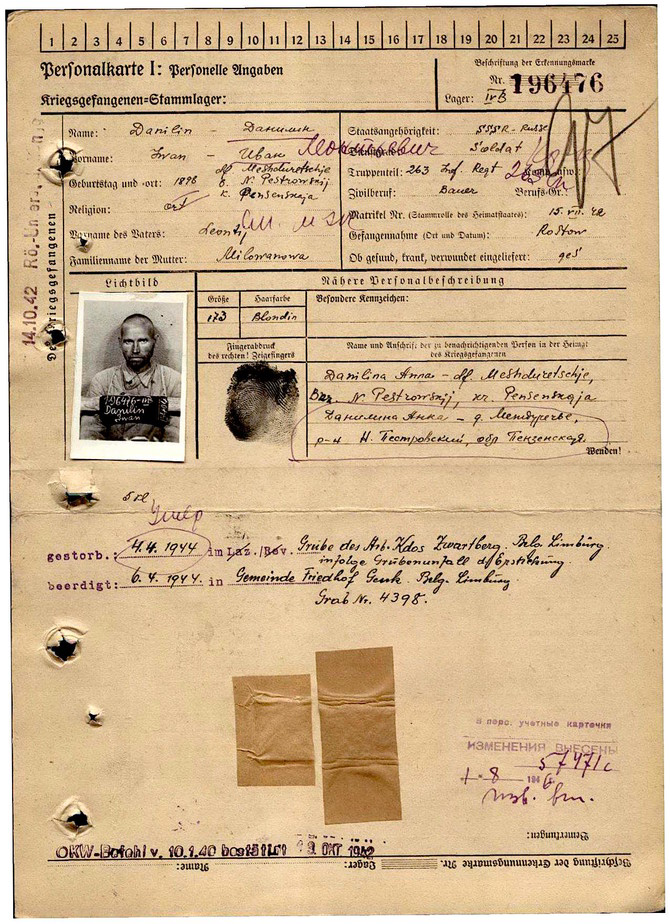 1 2 3 4 5 6 7 8 9 10 11 12 13 14 15 16 17 18 19 20 21 22 23 24 25
Personalkarte I: Personelle Angaben
Beschriftung der Erkennungsmarke
Nr. 196476
Kriegsgefangenen-Stammlager:
Lager: IVB
Name: Danilin – Данилин
Staatsangehörigkeit: SSSR - Russe
Vorname: Iwan – Иван
Soldat
Geburtstag und -ort: 1898 df Meshduretschje
Truppenteil: 263 Inf. Regt
r. N. Pestrowskij
k. Pensenskaja
Zivilberuf: Bauer Berufs-Gr.:
Religion: ort
Matrikel Nr. (Stammrolle des Heimatstaates): 15. VII. 42
Vorname des Vaters: Leontij
Gefangennahme (Ort und Datum): Rostow
Familienname der Mutter: Milowanowa
Ob gesund, krank, verwundet eingeliefert: ges
14.10.42
Lichtbild
Nähere Personalbeschreibung
Größe Haarfarbe Besondere Kennzeichen:
173 Blondin
Fingerabdruck
des rechten! Zeigefingers
Name und Anschrift der zu benachrichtigenden Person in der Heimat
des Kriegsgefangenen
Danilina Anna – df. Meshduretschje,
N. Pestrowskij, kr. Pensenskaja
Данилина Анна – д. Междуречье,
р-н Н. Пестровский, обл Пензенская.
Wenden!
196476
Danilin
Iwan
умер
gestorb.: 4.4.1944 im Laz./Rev. Grube des Arb. Kdos Zwartberg. Belg. Limburg.
infolge Grubenunfall d/ Erstickung.
beerdigt: 6.4.1944. in Gemeinde Friedhof Genk. Belg. Limburg.
Grab Nr. 4398.
В перс. учетные карточки
ИЗМЕНЕНИЯ ВНЕСЕНЫ
Bemerkungen:
OKW-Befehl v. 10.1.40 bestätigt OKT 1942
Beschriftung der Erkennungsmarke Nr.
Lager:
Name: